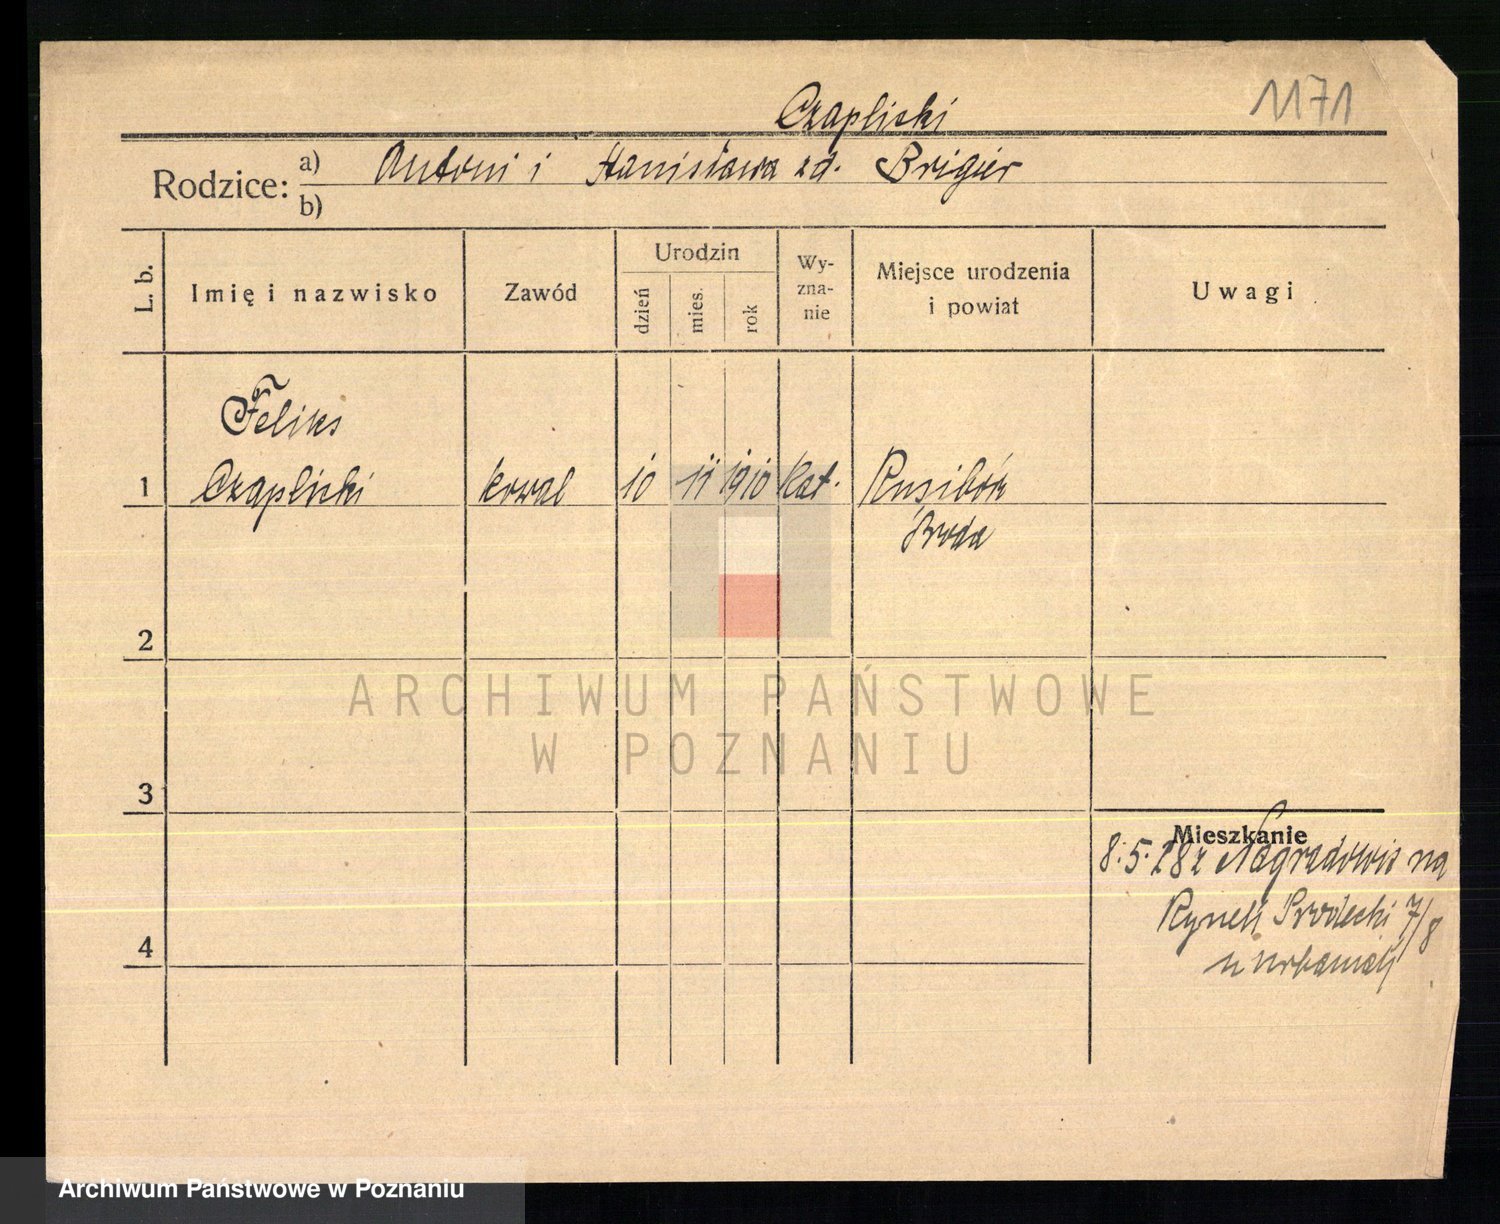 1171
Czapliski
Rodzice: a) Antoni i Stanisława zd. Brigier
b)
L. b.
Imię i nazwisko
Zawód
Urodzin
dzień
mies.
rok
Wy-
zna-
nie
Miejsce urodzenia
i powiat
Uwagi
Feliks
1 Czaplicki kowal 10 11 1910 kat. Rusibórz
Środa
2
3
4
Mieszkanie
8.5.28 z Nagradowic na
Rynek Środecki 7/8
u Urbaniak
ARCHIWUM PAŃSTWOWE
W POZNANIU
Archiwum Państwowe w Poznaniu